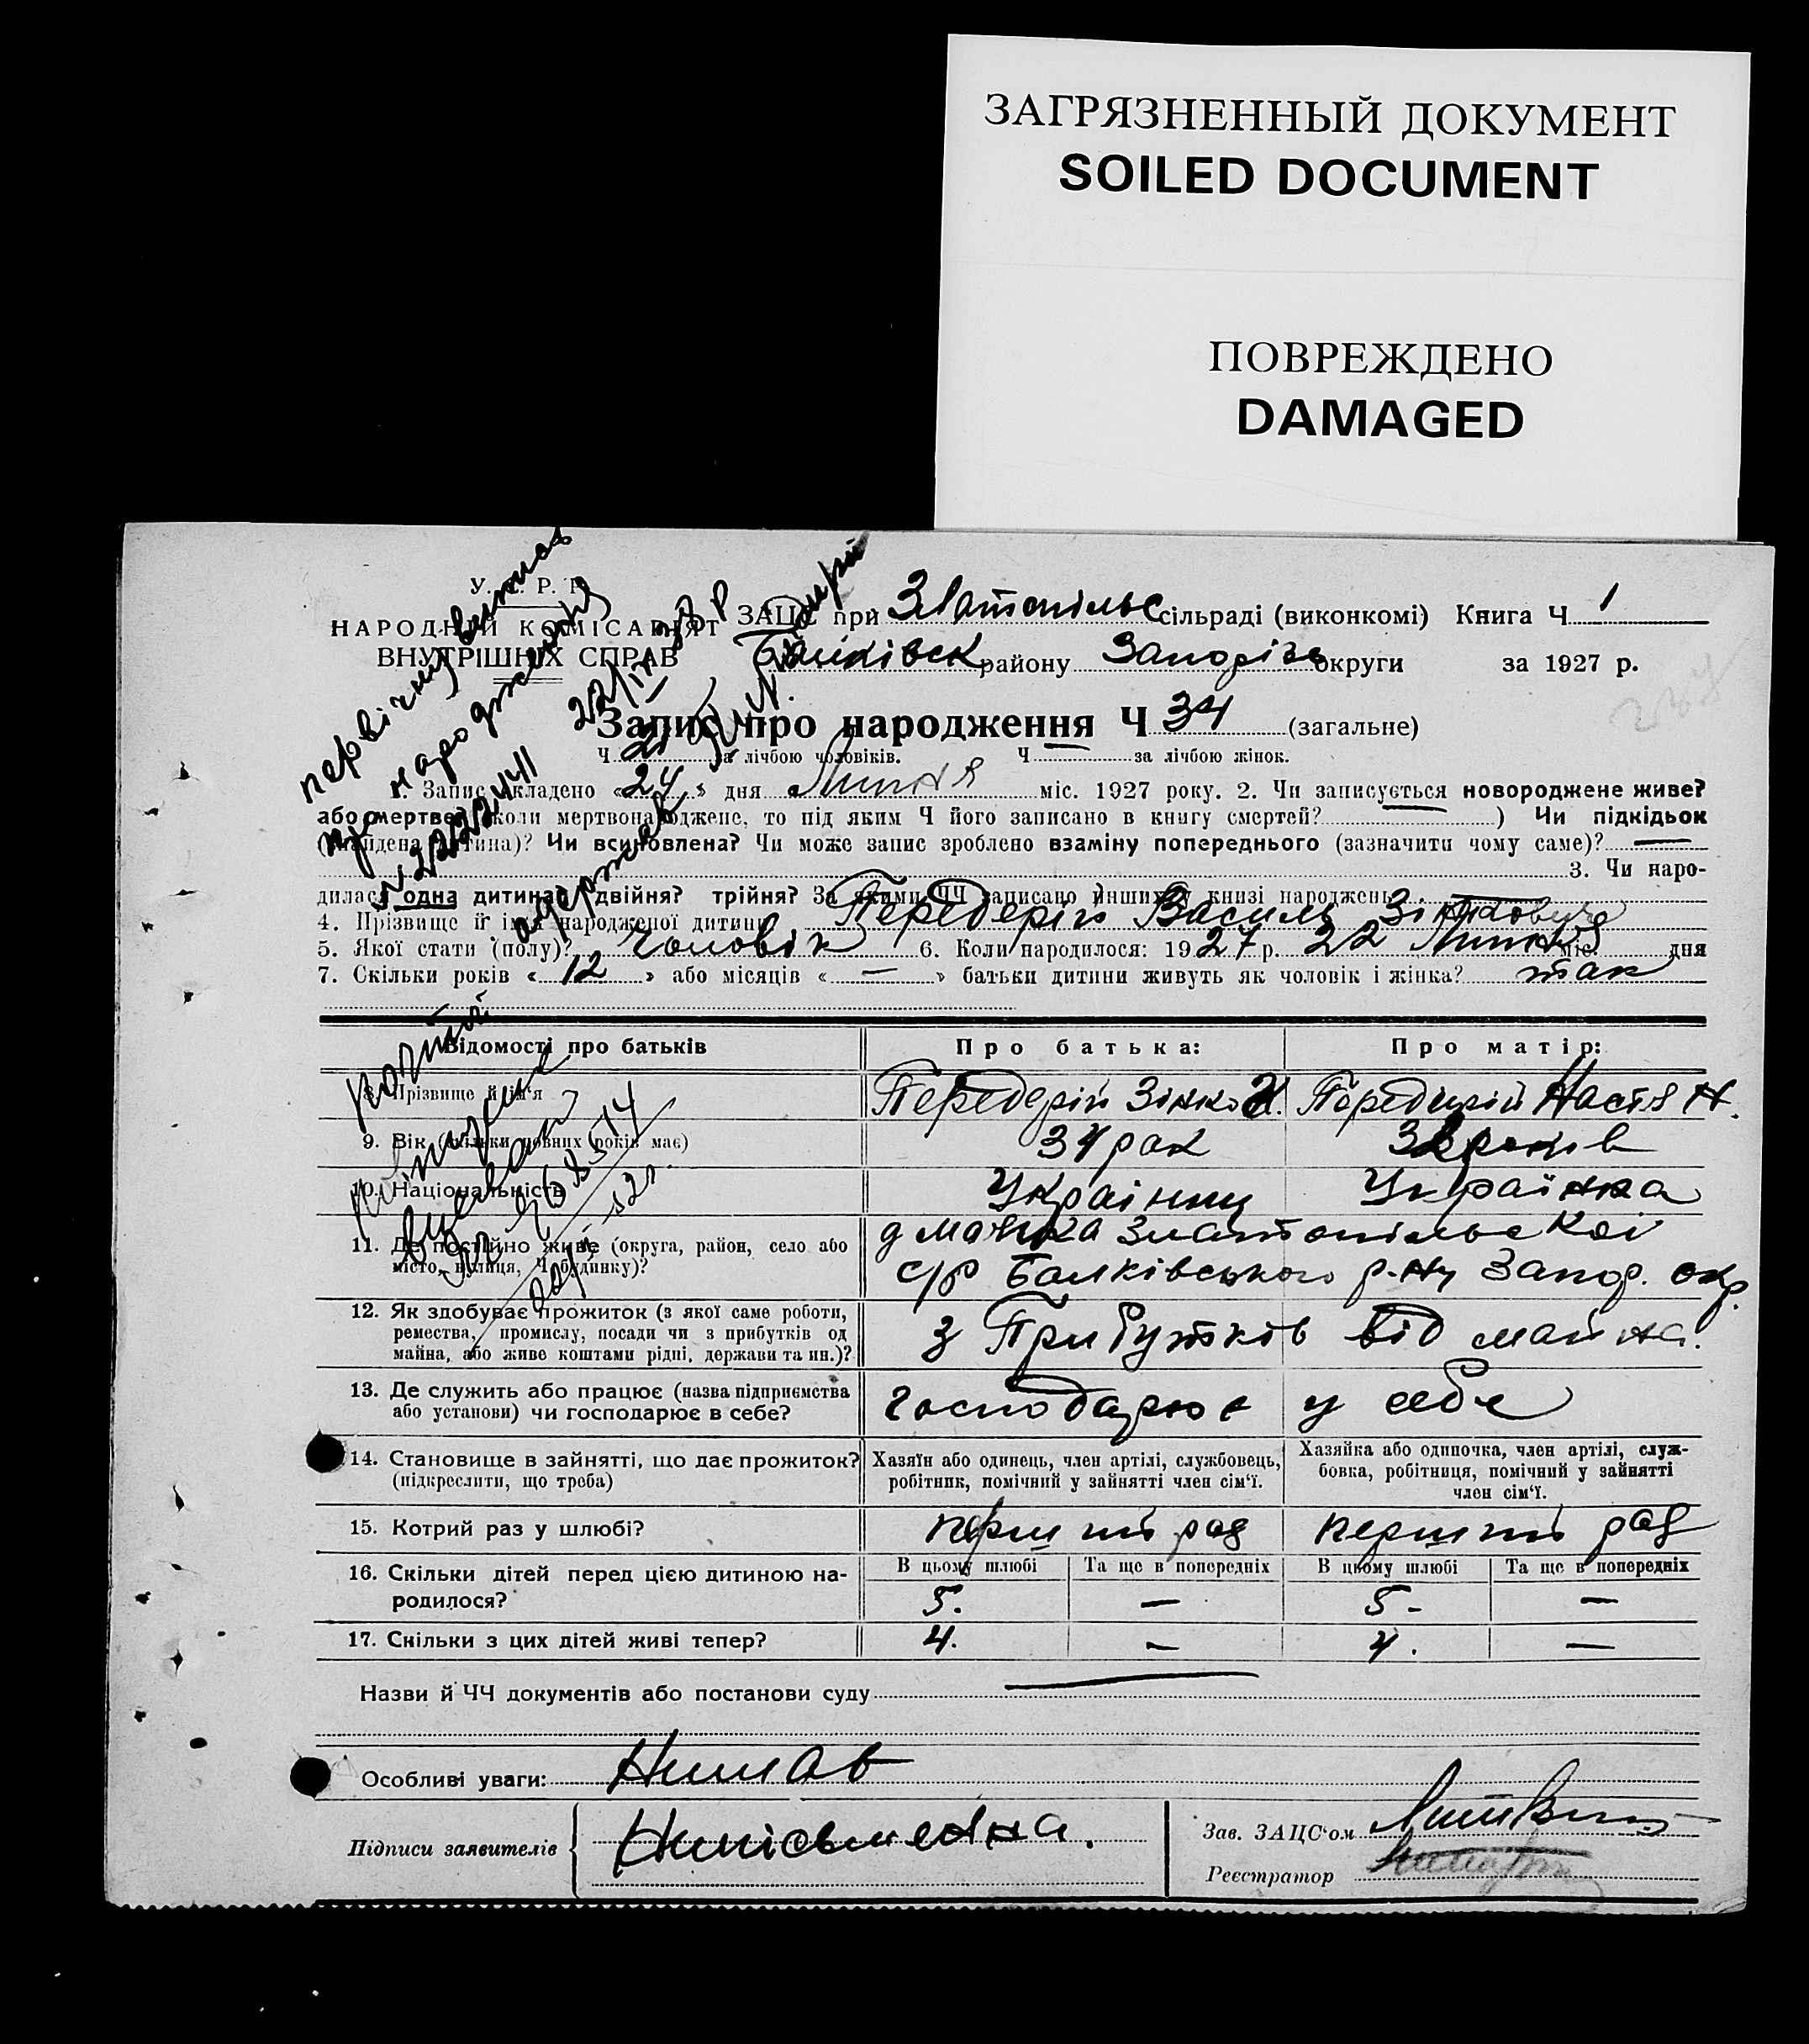 ЗАГРЯЗНЕННЫЙ ДОКУМЕНТ
SOILED DOCUMENT
ПОВРЕЖДЕНО
DAMAGED
У. С. Р. Р.
НАРОДНІЙ КОМІСАРІЯТ
ВНУТРІШНІХ СПРАВ
ЗАЦС при Златопільс сільраді (виконкомі) Книга Ч 1
Балківськ району Запорізь округи за 1927 р.
Запис про народження Ч 34 (загальне)
Ч 21 за лічбою чоловіків. Ч — за лічбою жінок.
1. Запис складено «24» дня Липня міс. 1927 року. 2. Чи записується новороджене живе?
або мертве? (коли мертвонароджене, то під яким Ч його записано в книгу смертей? —) Чи підкідьок
(знайдена дитина)? Чи всиновлена? Чи може запис зроблено взаміну попереднього (зазначити чому саме)? —
3. Чи наро-
дилася одна дитина? двійня? трійня? За якими ЧЧ записано инших у книзі народжень
4. Прізвище й ім'я народженої дитини Передерій Василь Зінковичь
5. Якої стати (полу)? чоловік 6. Коли народилося: 1927 р. 22 Липня міс. дня
7. Скільки років «12» або місяців «—» батьки дитини живуть як чоловік і жінка? так
первічну виписъ
народження
22/IV 38 р
пр
№222441
одержав
Відомості про батьків Про батька: Про матір:
8. Прізвище й ім'я Передерій Зінко И. Передирій Настя Н.
9. Вік (скільки повних років має) 34 рок 32 років
10. Національність Українць Українка
11. Де постійно живе (округа, район, село або
місто, вулиця, Ч будинку)?
д Маяка Златопільскої
с/р Балківського р-ну Запор. окр.
12. Як здобуває прожиток (з якої саме роботи,
ремества, промислу, посади чи з прибутків од
майна, або живе коштами рідні, держави та ин.)?
з Прибутків від майна.
13. Де служить або працює (назва підприємства
або установи) чи господарює в себе?
господарює у себе
14. Становище в зайнятті, що дає прожиток?
(підкреслити, що треба)
Хазяїн або одинець, член артілі, службовець,
робітник, помічний у зайнятті член сім'ї.
Хазяйка або одиночка, член артілі, служ-
бовка, робітниця, помічний у зайнятті
член сім'ї.
15. Котрий раз у шлюбі? перший раз перший раз
16. Скільки дітей перед цією дитиною на-
родилося?
В цьому шлюбі Та ще в попередніх В цьому шлюбі Та ще в попередніх
5. — 5 - —
17. Скільки з цих дітей живі тепер? 4. — 4. —
Назви й ЧЧ документів або постанови суду
Особливі уваги: Нимав
Підписи заявителів Нипісьменна.
Зав. ЗАЦС'ом
Реєстратор